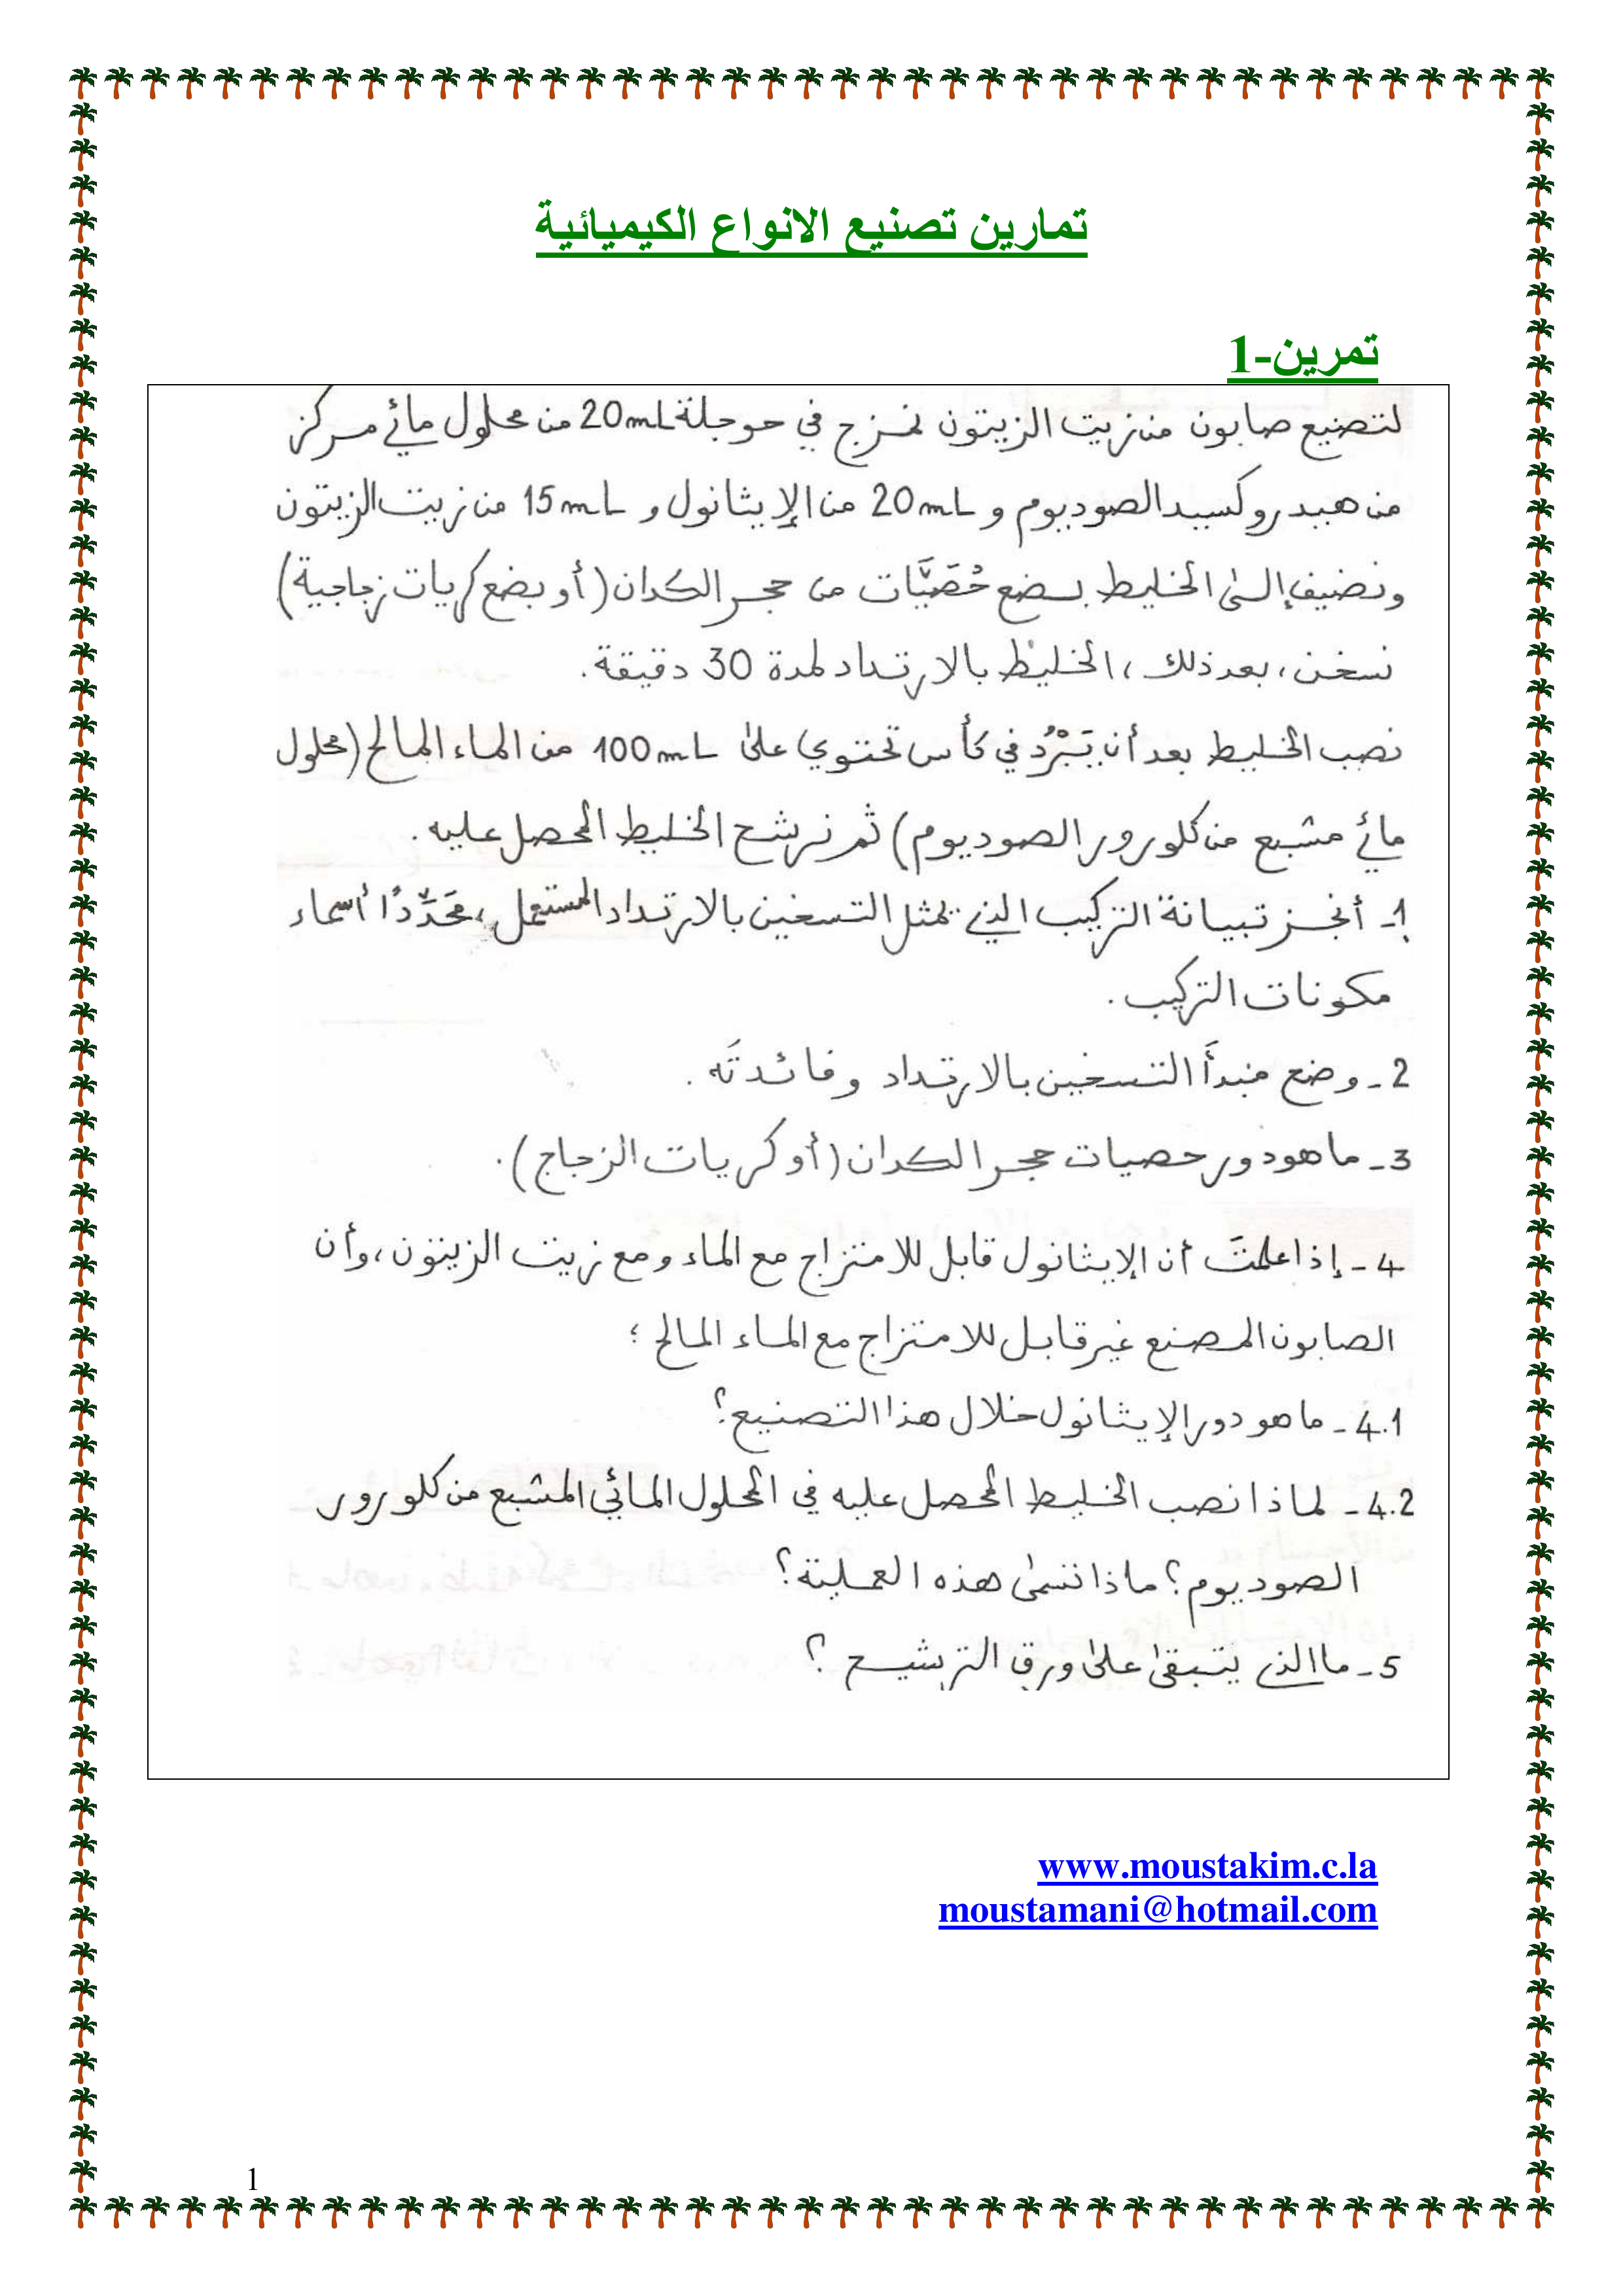 تمارين تصنيع الانواع الكيميائية
تمرين-1
لتصنيع صابون من زيت الزيتون نمزج في حوجلة 20mL من محلول مائي مركز
من هيدروكسيد الصوديوم و 20mL من الإيثانول و 15mL من زيت الزيتون
ونضيف إلى الخليط بضع حُصَيَّات من حجر الكدان (أو بضع كريات زجاجية)
نسخن، بعد ذلك، الخليط بالارتداد لمدة 30 دقيقة.
نصب الخليط بعد أن يَبْرُد في كأس تحتوي على 100mL من الماء المالح (محلول
مائي مشبع من كلورور الصوديوم) ثم نرشح الخليط المحصل عليه.
1- أنجز تبيانة التركيب الذي يمثل التسخين بالارتداد المستعمل، محَدِّدًا أسماء
مكونات التركيب.
2- وضح مبدأَ التسخين بالارتداد وفائدتَه.
3- ما هو دور حصيات حجر الكدان (أو كريات الزجاج).
4- إذا علمتَ أن الإيثانول قابل للامتزاج مع الماء ومع زيت الزيتون، وأن
الصابون المصنع غير قابل للامتزاج مع الماء المالح؛
4.1- ما هو دور الإيثانول خلال هذا التصنيع؟
4.2- لماذا نصب الخليط المحصل عليه في المحلول المائي المشبع من كلورور
الصوديوم؟ ماذا تسمى هذه العملية؟
5- ما الذي يتبقى على ورق الترشيح؟
www.moustakim.c.la
moustamani@hotmail.com
1